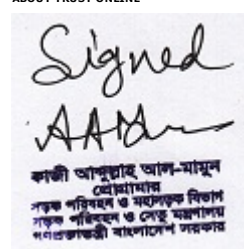 ABOUT TRUST ONLINE
Signed
কাজী আব্দুল্লাহ আল-মামুন
প্রোগ্রামার
সড়ক পরিবহন ও মহাসড়ক বিভাগ
সড়ক পরিবহন ও সেতু মন্ত্রণালয়
গণপ্রজাতন্ত্রী বাংলাদেশ সরকার